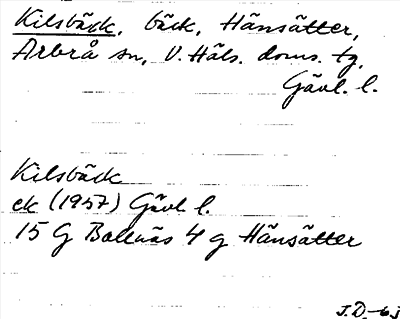 Kilsbäck, bäck, Hänsätter,
Arbrå sn, V. Häls. doms. tg,
Gävl. l.
Kilsbäck
ek (1957) Gävl l.
15 G Bollnäs 4 g Hänsätter
J.D.-63